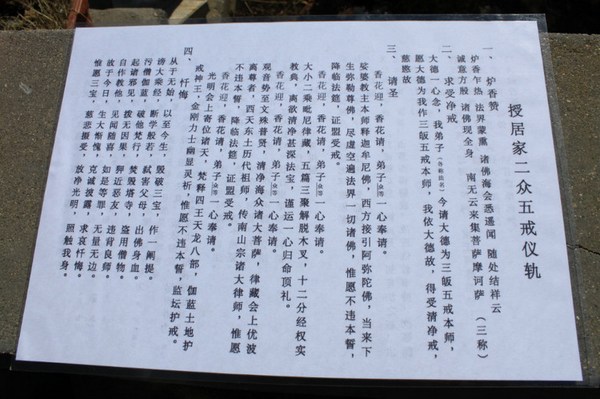 授居家二众五戒仪轨
一、炉香赞
炉香乍热 法界蒙熏 诸佛海会悉遥闻 随处结祥云
诚意方殷 诸佛现全身 南无云来集菩萨摩诃萨（三称）
二、求受净戒
大德一心念，我弟子（各称法名）今请大德为三皈五戒本师，
愿大德为我作三皈五戒本师，我依大德故，得受清净戒，
慈愍故
三、请圣
香花迎，香花请，弟子众等一心奉请。
娑婆教主本师释迦牟尼佛，西方接引阿弥陀佛，当来下
生弥勒尊佛，尽虚空遍法界一切诸佛，惟愿不违本誓，
降临法筵，证盟受戒。
香花迎，香花请，弟子众等一心奉请。
大小二乘毗尼律藏，五篇三聚解脱木叉，十二分经权实
教典，离欲清净甚深法宝，谨运一心归命顶礼。
香花迎，香花请，弟子众等一心奉请。
观音势至文殊普贤，清净海众诸大菩萨，律藏会上优波
离尊者，西天东土历代祖师，传南山宗诸大律师，惟愿
不违本誓，降临法筵，证盟受戒。
香花迎，香花请，弟子众等一心奉请。
光明会上寄位诸天，梵释四王天龙八部，伽蓝土地护
戒神王，金刚力士幽显灵祈，惟愿不违本誓，监坛护戒。
四、忏悔
从于无始，以至今生，毁破三宝，作一阐提。
谤大乘经，断学般若，弑害父母，出佛身血。
污僧伽蓝，破他梵行，焚毁塔寺，盗用僧物。
起诸邪见，拨无因果，狎近恶友，违背良师。
自作教他，见闻随喜，如是等罪，无量无边。
故于今日，生大惭愧，克诚披露，求哀忏悔。
惟愿三宝，慈悲摄受，放净光明，照触我身。